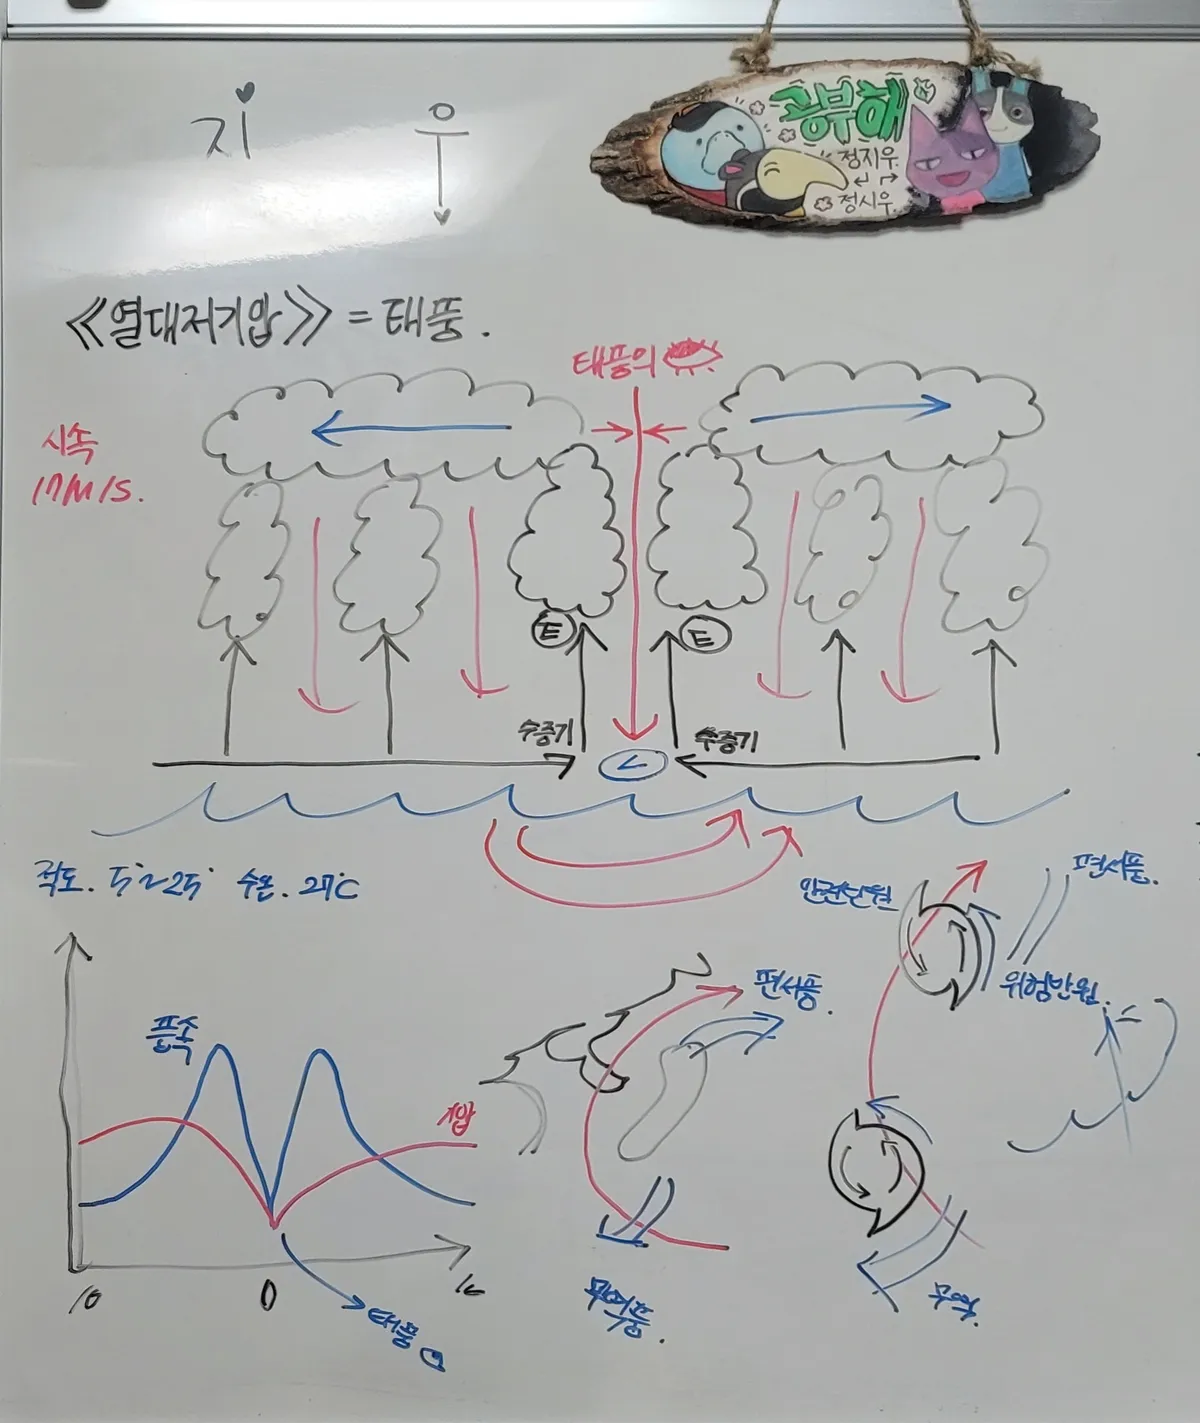 지 우
공부해
정지우
정시우
《열대저기압》 = 태풍.
태풍의
시속
17M/S.
E E
수증기 수증기
L
적도. 5°~25° 수온. 27°C
안전반원 편서풍.
위험반원.
풍속
기압
10 0 10
태풍
편서풍.
무역풍.
무역.